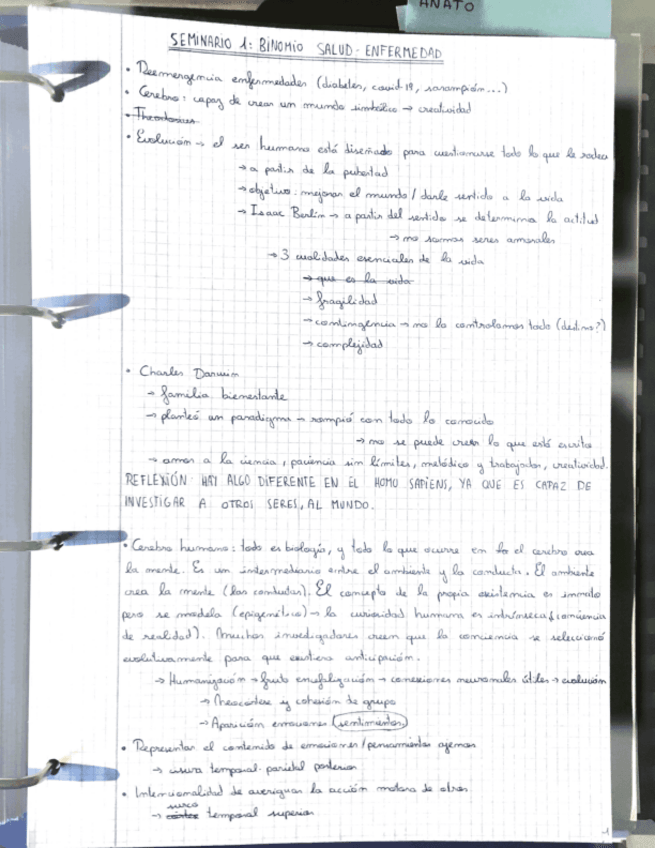 ANATO
SEMINARIO 1: BINOMIO SALUD-ENFERMEDAD
• Reemergencia enfermedades (diabetes, covid-19, sarampión...)
• Cerebro: capaz de crear un mundo simbólico → creatividad
• Evolución → el ser humano está diseñado para cuestionarse todo lo que le rodea
→ a partir de la pubertad
→ objetivo: mejorar el mundo / darle sentido a la vida
→ Isaac Berlin → a partir del sentido se determina la actitud
→ no somos seres amorales
→ 3 cualidades esenciales de la vida
→ que es la vida
→ fragilidad
→ contingencia → no lo controlamos todo (destino?)
→ complejidad
• Charles Darwin
→ familia bienestante
→ planteó un paradigma → rompió con todo lo conocido
→ no se puede creer lo que está escrito
→ amor a la ciencia, paciencia sin límites, metódico y trabajador, creatividad.
REFLEXIÓN: HAY ALGO DIFERENTE EN EL HOMO SAPIENS, YA QUE ES CAPAZ DE
INVESTIGAR A OTROS SERES, AL MUNDO.
• Cerebro humano: todo es biología, y todo lo que ocurre en el cerebro crea
la mente. Es un intermediario entre el ambiente y la conducta. El ambiente
crea la mente (las conductas). El concepto de la propia existencia es innato
pero se modela (epigenética) → la curiosidad humana es intrínseca (conciencia
de realidad). Muchos investigadores creen que la conciencia se seleccionó
evolutivamente para que existiera anticipación.
→ Humanización → fruto encefalización → conexiones neuronales útiles → evolución
→ Neocórtex y cohesión de grupo
→ Aparición emociones (sentimientos)
• Representar el contenido de emociones/pensamientos ajenos
→ cisura temporal-parietal posterior
• Intencionalidad de averiguar la acción motora de otros
→ surco temporal superior
1